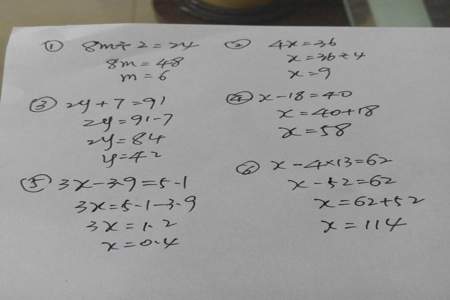 ① 8m÷2=24
8m=48
m=6
② 4x=36
x=36÷4
x=9
③ 2y+7=91
2y=91-7
2y=84
y=42
④ x-18=40
x=40+18
x=58
⑤ 3x-3.9=5.1
3x=5.1-3.9
3x=1.2
x=0.4
⑥ x-4×13=62
x-52=62
x=62+52
x=114